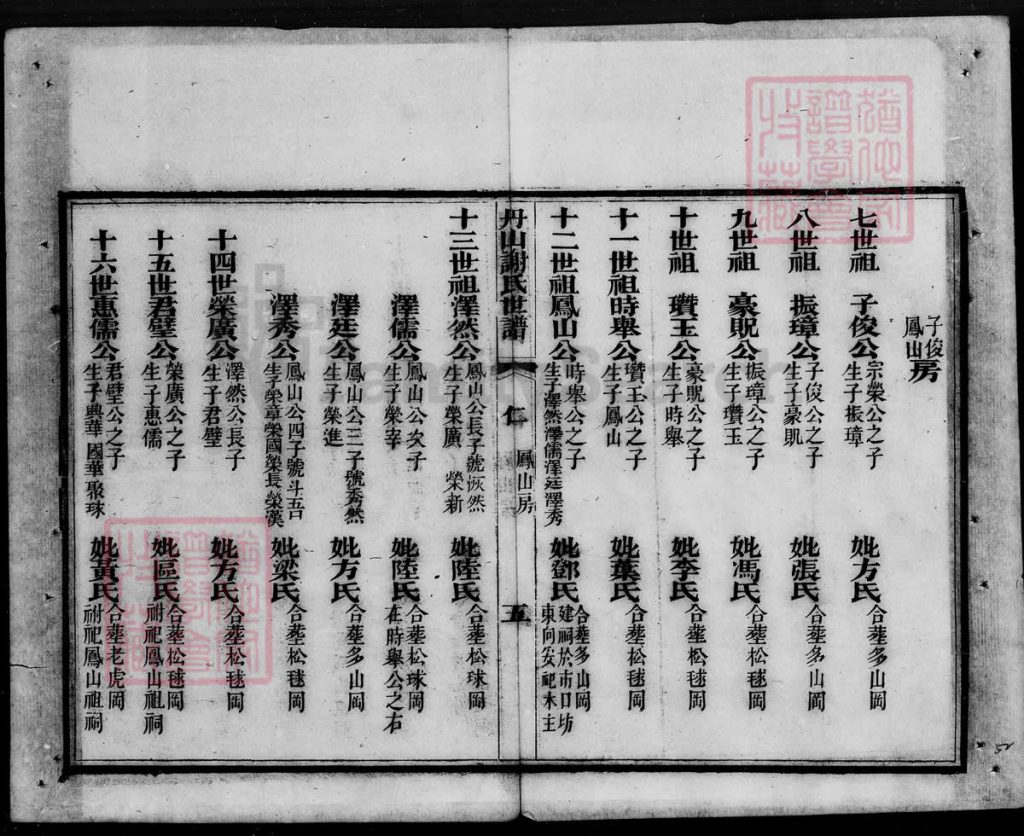 子俊
鳳山房
七世祖 子俊公 宗榮公之子 生子振璋 妣方氏 合塟多山岡
八世祖 振璋公 子俊公之子 生子豪貺 妣張氏 合塟多山岡
九世祖 豪貺公 振璋公之子 生子瓚玉 妣馮氏 合塟松毬岡
十世祖 瓚玉公 豪貺公之子 生子時舉 妣李氏 合塟松毬岡
十一世祖時舉公 瓚玉公之子 生子鳳山 妣葉氏 合塟松毬岡
十二世祖鳳山公 時舉公之子 生子澤然澤儒澤廷澤秀 妣鄧氏 合塟多山岡 建祠於南口坊 東向安祀木主
丹山謝氏世譜 仁 鳳山房 五
十三世祖澤然公 鳳山公長子號恢然 生子榮廣 榮新 妣陸氏 合塟松球岡
澤儒公 鳳山公次子 生子榮宰 妣陸氏 合塟松球岡 在時舉公之右
澤廷公 鳳山公三子號秀然 生子榮進 妣方氏 合塟多山岡
澤秀公 鳳山公四子號斗吾 生子榮章榮國榮長榮漢 妣梁氏 合塟松毬岡
十四世榮廣公 澤然公長子 生子君璧 妣方氏 合塟松毬岡
十五世君璧公 榮廣公之子 生子惠儒 妣區氏 合塟松毬岡 祔祀鳳山祖祠
十六世惠儒公 君璧公之子 生子興華 國華 聚球 妣黃氏 合塟老虎岡 祔祀鳳山祖祠